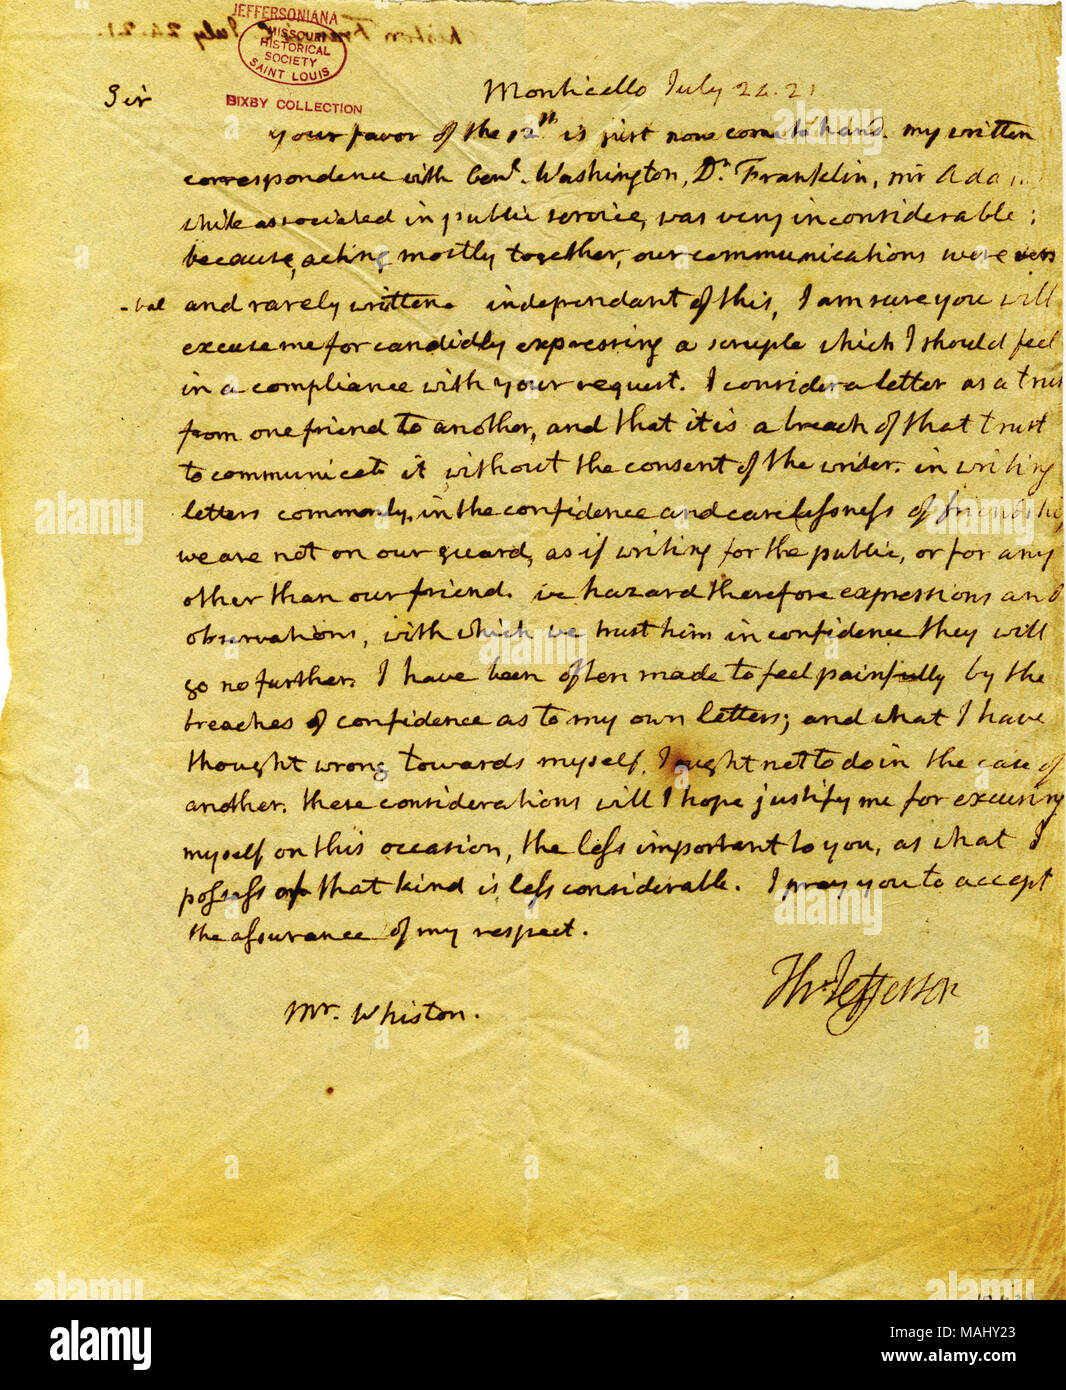 JEFFERSONIANA
MISSOURI
HISTORICAL
SOCIETY
SAINT LOUIS
BIXBY COLLECTION
Monticello July 24. 21
Sir
your favor of the 12th is just now come to hand. my written
correspondence with Genl. Washington, Dr. Franklin, mr Adams
while associated in public service, was very inconsiderable;
because, acting mostly together, our communications were ver
-bal and rarely written. independant of this, I am sure you will
excuse me for candidly expressing a scruple which I should feel
in a compliance with your request. I consider a letter as a trust
from one friend to another, and that it is a breach of that trust
to communicate it without the consent of the writer. in writing
letters commonly, in the confidence and carelessness of friendship
we are not on our guard, as if writing for the public, or for any
other than our friend. we hazard therefore expressions and
observations, with which we trust him in confidence they will
go no further. I have been often made to feel painfully by the
breaches of confidence as to my own letters; and what I have
thought wrong towards myself, I ought not to do in the case of
another. these considerations will I hope justify me for excusing
myself on this occasion, the less important to you, as what I
possess of that kind is less considerable. I pray you to accept
the assurance of my respect.
Th: Jefferson
Mr. Whiston.
alamy
Image ID: MAHY23
www.alamy.com